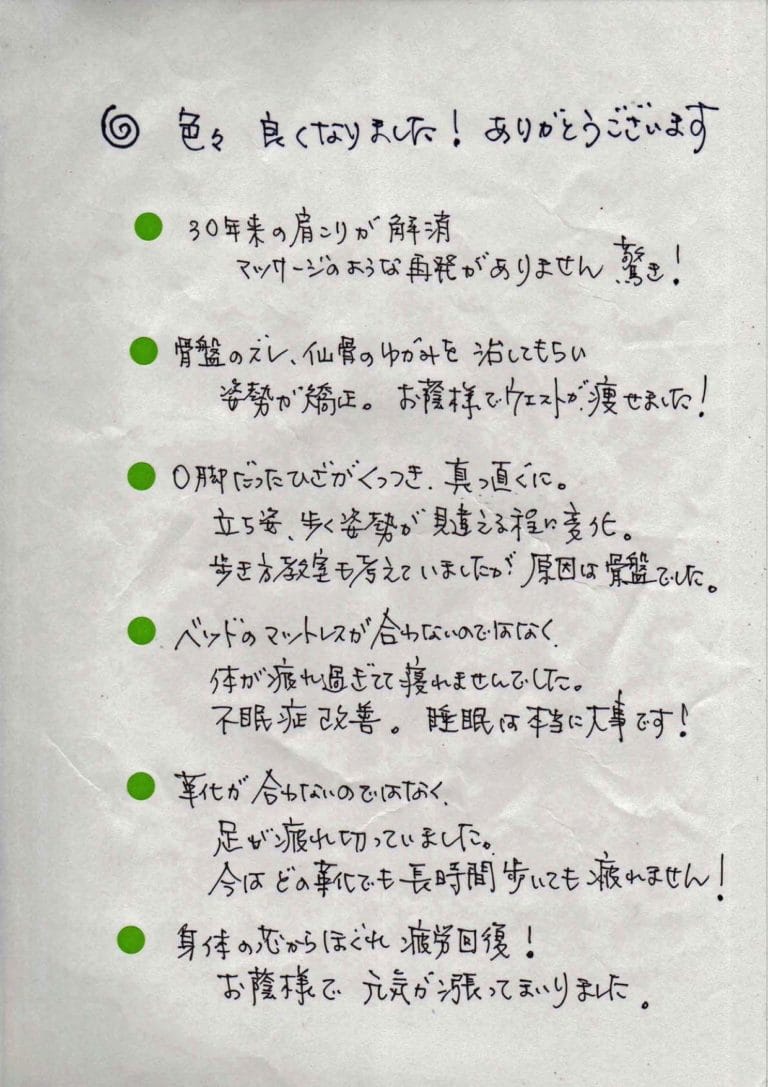 色々 良くなりました! ありがとうございます
30年来の肩こりが 解消
マッサージのような再発がありません 驚き!
骨盤のズレ、仙骨のゆがみを 治してもらい
姿勢が矯正。 お蔭様でウェストが痩せました!
O脚だったひざがくっつき、真っ直ぐに。
立ち姿、歩く姿勢が 見違える程に変化。
歩き方教室も考えていましたが 原因は骨盤でした。
ベッドのマットレスが合わないのではなく、
体が疲れ過ぎてて寝れませんでした。
不眠症改善。 睡眠は本当に大事です!
革化が合わないのではなく、
足が疲れ切っていました。
今はどの革化でも長時間歩いても疲れません!
身体の芯からほぐれ 疲労回復!
お蔭様で 元気が漲ってまいりました。